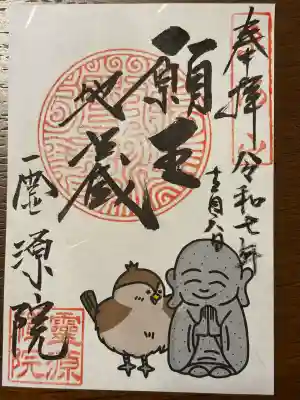 奉拝
令和七年
十二月八日
願王
地蔵
霊源院
靈源
院